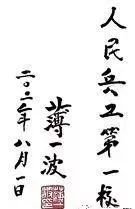 人民兵工第一槍
薄一波
二〇〇二年八月一日